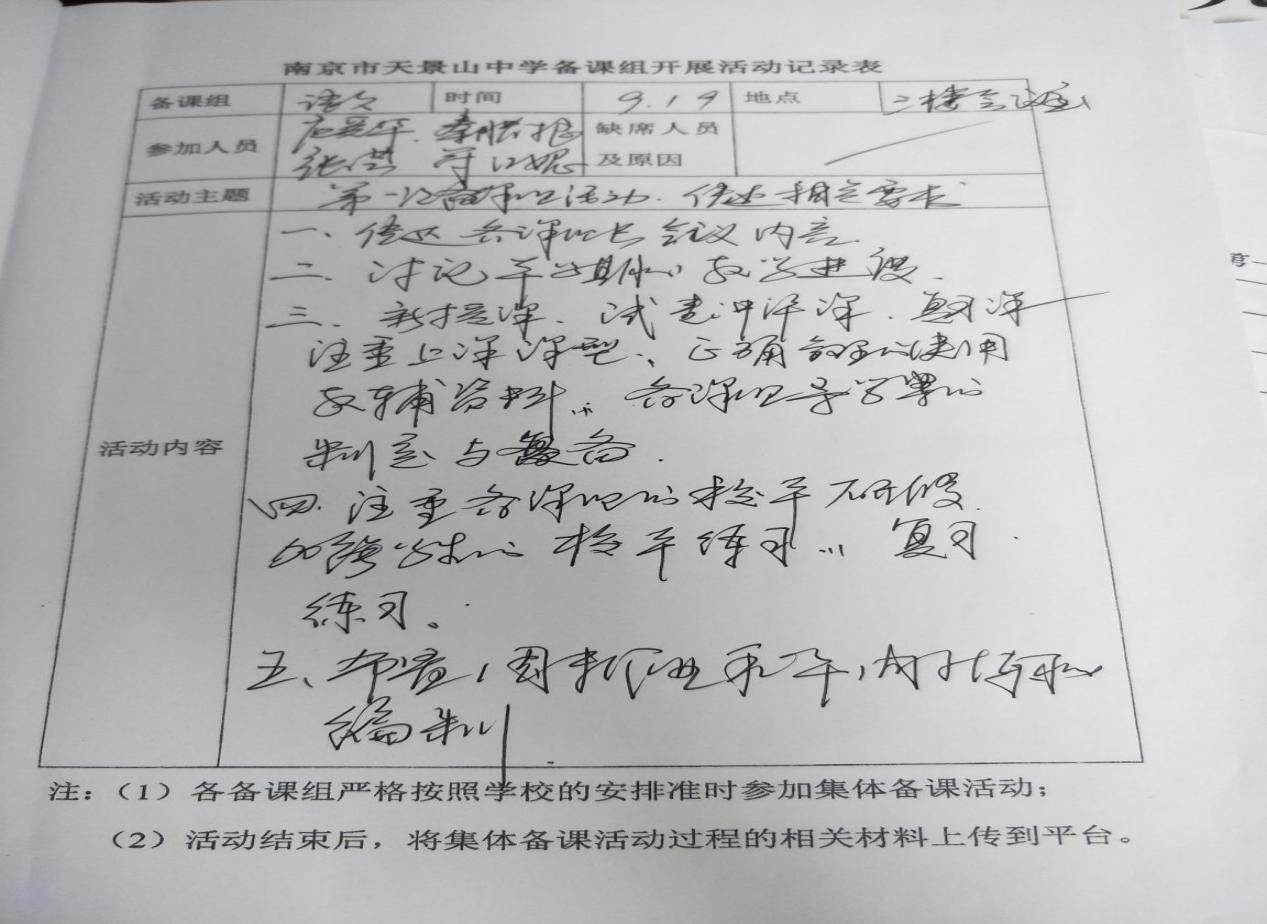 南京市天景山中学备课组开展活动记录表
备课组 语文 时间 9.19 地点 二楼会议室
参加人员 缺席人员
张 及原因
活动主题 第一次备课组活动.传达相关要求
一、传达备课组长会议内容
二、讨论本学期的教学进度.
三、新授课、试卷讲评课、复习课
注重上课课型、正确合理的使用
教辅资料、备课组导学案的
活动内容 制定与复备.
四、注重备课组的校本研修
加强学生的校本练习、复习
练习。
五、布置周末作业和
编制
注：（1）各备课组严格按照学校的安排准时参加集体备课活动；
（2）活动结束后，将集体备课活动过程的相关材料上传到平台。